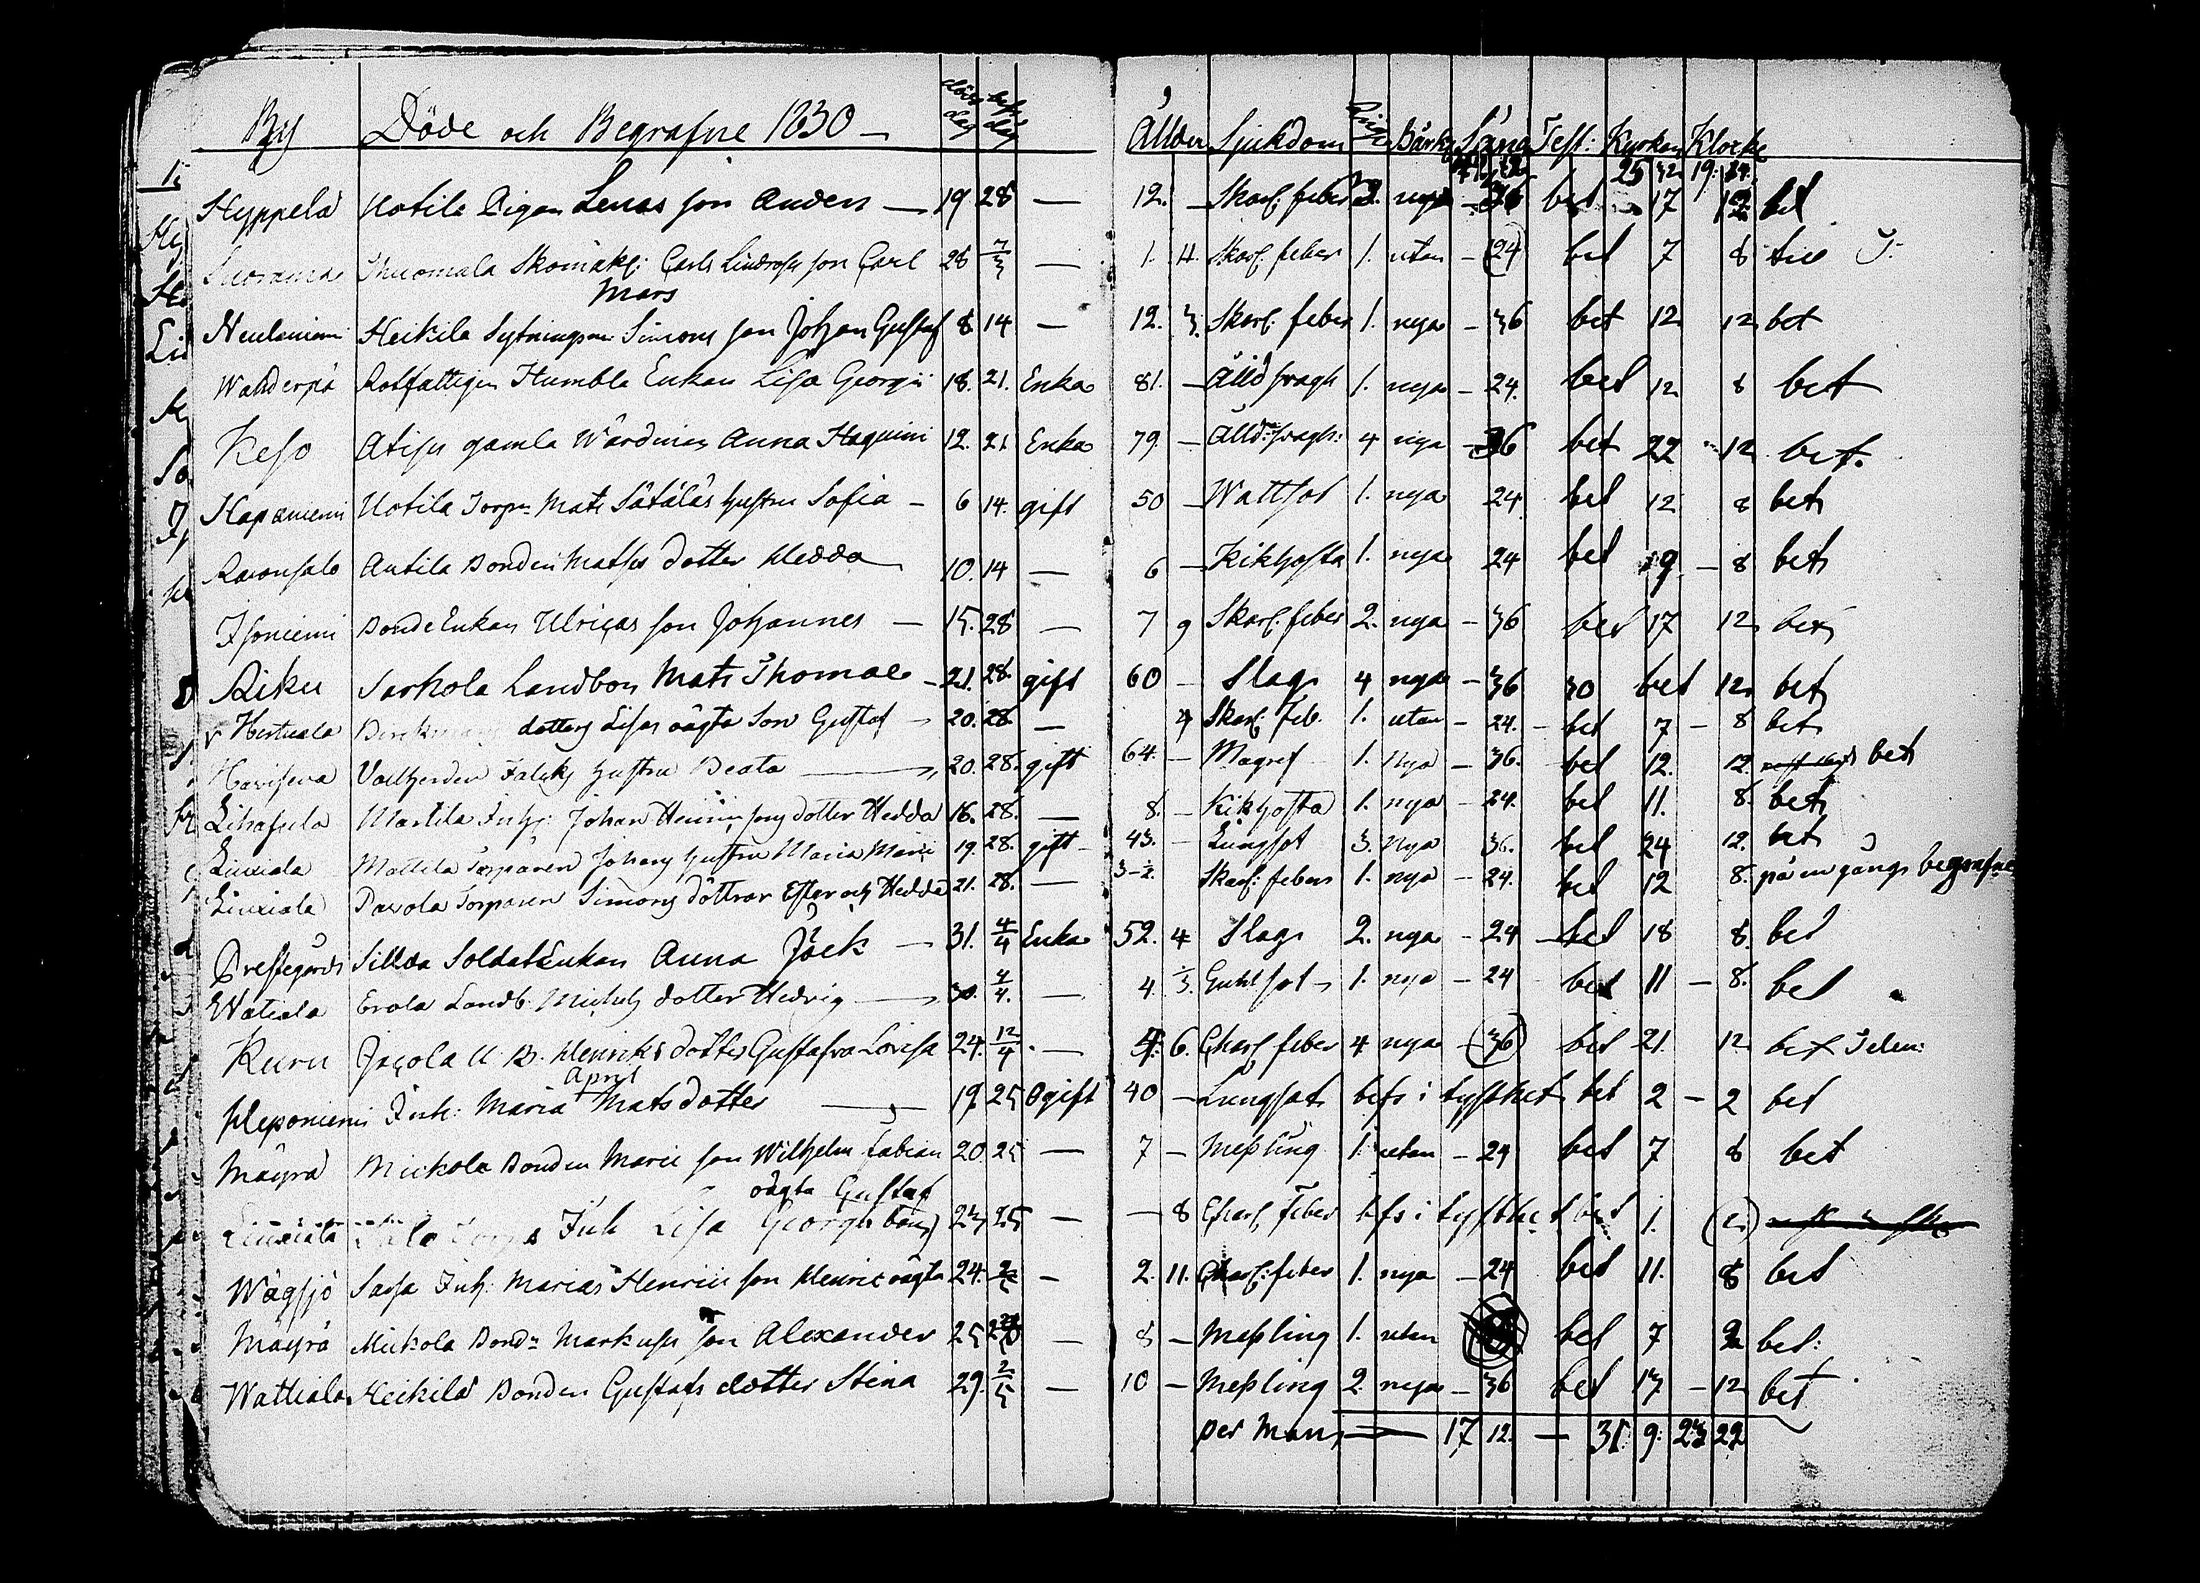 By Döde och Begrafne 1830 döds dag begr dag Ålder Sjukdom Ring Bårkl Sång Test: Kyrkan Klocke
25 32 19: 24.
Hyppelä Uotila Pigan Lenas son Anders — 19 28 — 12. — Skarl. feber 2. nya — 36 bet 17 12 bet
Thuomala Skomak: Carls Lindrofs son Carl 28 7/3 — 1. 11. Skarl. feber 1. utan — (24) bet 7 8
Mars
Neulaniemi Heikila Sytningsm Simons son Johan Gustaf 8 14 — 12. 3. Skarl. feber 1. nya — 36 bet 12 12 bet
Wahderpä Rotfattigen Humbla Enkan Lisa Georgii 18. 21. Enka 81. — Ålld. sragh 1. nya — 24. bet 12 8 bet
Keso Atisis gamla Wärdinan Anna Haquini 12. 21 Enka 79. — Ålld. sragh: 4 nya — 36 bet 22 12 bet.
Hapaniemi Uotila Torpn Mats Sätäläs hustru Sofia — 6 14. gift 50 — Wattsot 1. nya 24 bet 12 8 bet
Ravonsalo Antila Bonden Matses dotter Hedda 10. 14 — 6 — Kikhosta 1. nya 24 bet 9 — 8 bet
Isoniemi Bonde Enkan Ulricas son Johannes — 15. 28 — 7 9 Skarl. feber 2. nya — 36 bet 17 12 bet
Riku Sarkola Landbon Mats Thomae — 21. 28. gift 60 — Slag 4 nya — 36 30 bet 12 bet
Hertuala dotters Lisas oägta Son Gustaf — 20. 28 — 4 Skarl. feb. 1. utan — 24. — bet 7 — 8 bet
Haviseva Vallherden Falcks hustru Beata — 20. 28. gift 64. — Magref 1. nya — 36. bet 12. 12. bet
Lihasula Martila Inhs: Johan Henrics sons dotter Hedda 16. 28. — 8. — Kikhosta 1. nya — 24. bet 11. 8. bet
Liuxiala Mattila Torparen Johans hustru Maria Marci 19. 28. gift — 43. — Lungsot 3. nya 36. bet 24 12. bet
Liuxiala Pavola Torparen Simons döttrar Ester och Hedda 21. 28. — 3-2. Skarl. feber 1. nya — 24. bet 12 8. på en gång begrafne
Prestegårds Sillda Soldat Enkan Anna Jäck — 31. 4/4 Enka 52. 4 Slag 2. nya — 24 — bet 18 8. bet
Watiala Erola Landb. Michels dotter Hedvig — 30. 4/4. — 4. 1/3. Guhlsot — 1. nya — 24 bet 11 — 8. bet
Kuru Jacola U. B. Henriks dotter Gustafva Lovisa 24. 12/4. — 4. 6. Skarl. feber 4 nya — (36) bet 21. 12 bet
April
Heponiemi Inh: Maria Matsdotter — 19 25 Ogift 40 — Lungsot befs i tysthet bet 2 — 2 bet
Mäyrä Mickola Bonden Marci son Wilhelm Fabian 20. 25 — 7 — Meßling 1. utan — 24 bet 7 8 bet
oägta Gustaf
Liuxiala Inh Lisa Georgs barn) 23 25 — — 8 Skarl. feber bfs i tysthet bet 1.
Wägsjö Sassa Inh. Marias Henrici son Henric oägta 24. 2/5 — 2. 11. Skarl. feber 1. nya — 24 bet 11. 8 bet
Mäyrä Mickola Bondn Markuses son Alexander 25 — 8 — Meßling 1. utan bet 7 bet:
Wattiala Heikila Bonden Gustafs dotter Stina 29. 2/5 — 10 — Meßling 2. nya — 36 bet 17 — 12 bet
per Mans — 17 12. — 31. 9. 23 22